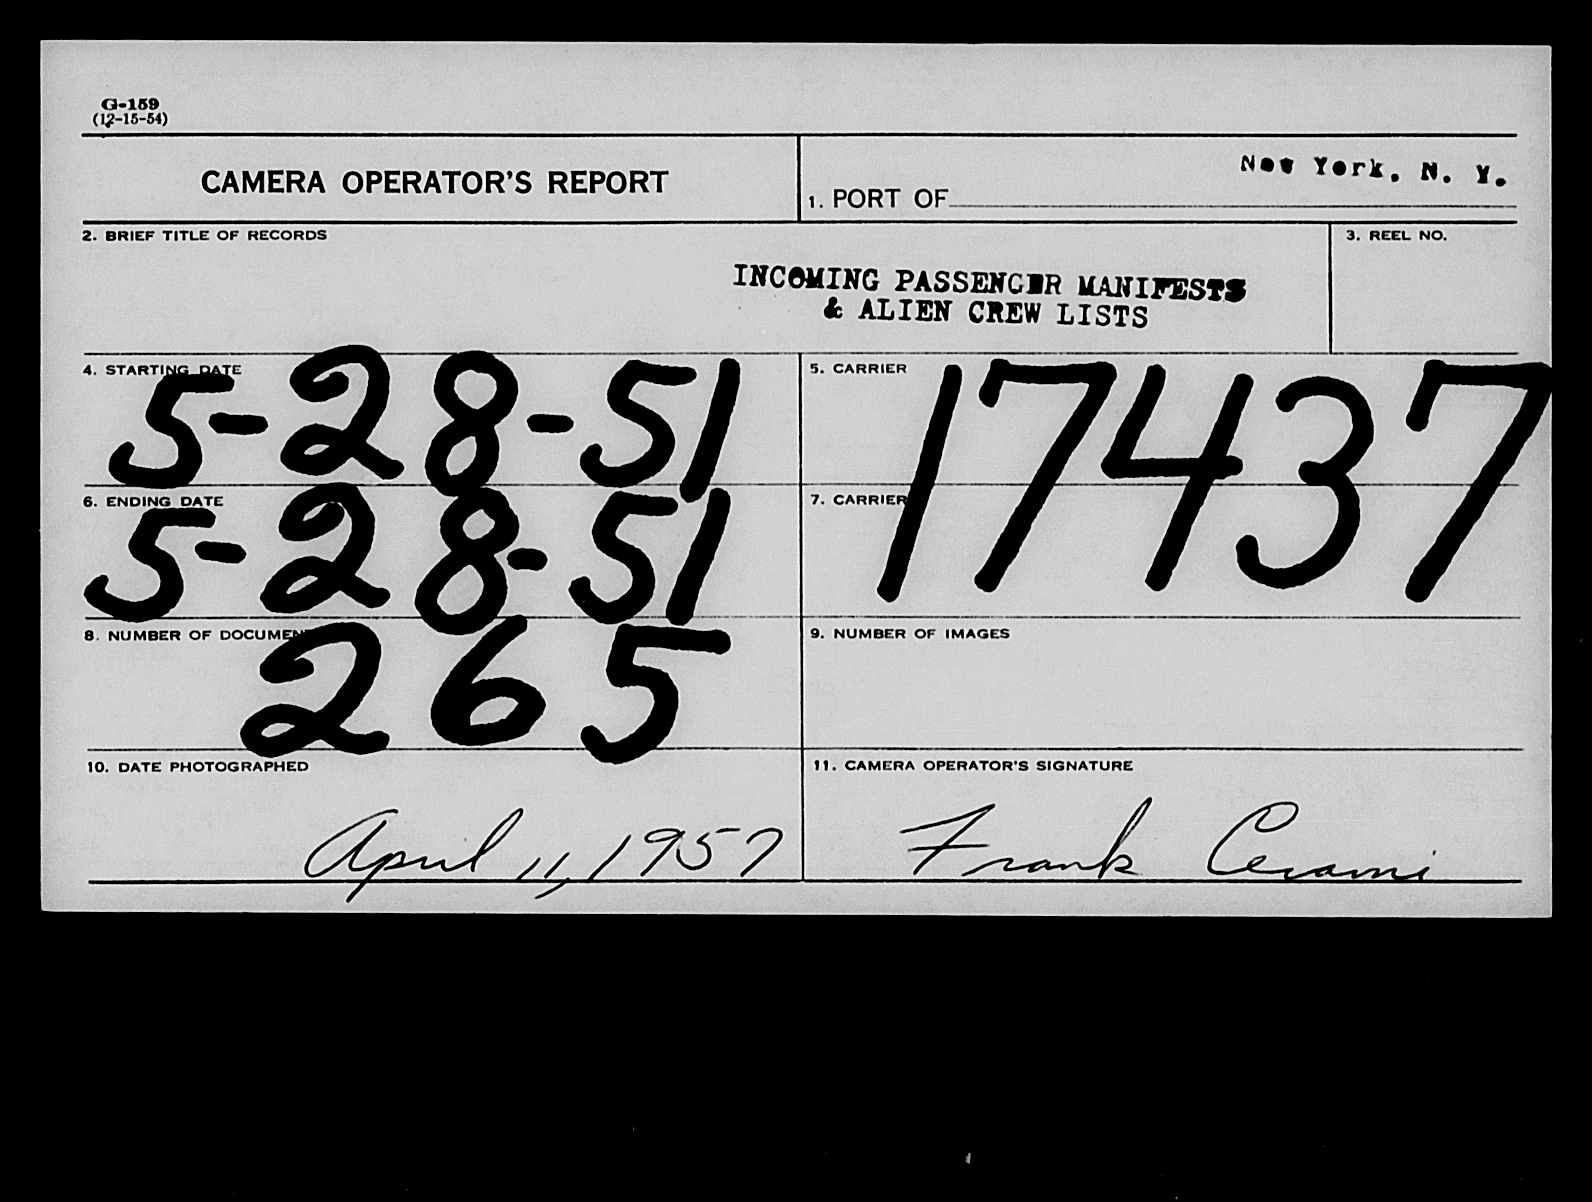 G-159
(12-15-54)
CAMERA OPERATOR'S REPORT
1. PORT OF New York, N. Y.
2. BRIEF TITLE OF RECORDS
INCOMING PASSENGER MANIFESTS
& ALIEN CREW LISTS
3. REEL NO.
4. STARTING DATE
5-28-51
5. CARRIER
17437
6. ENDING DATE
5-28-51
7. CARRIER
8. NUMBER OF DOCUMENTS
265
9. NUMBER OF IMAGES
10. DATE PHOTOGRAPHED
April 11, 1957
11. CAMERA OPERATOR'S SIGNATURE
Frank Cerami